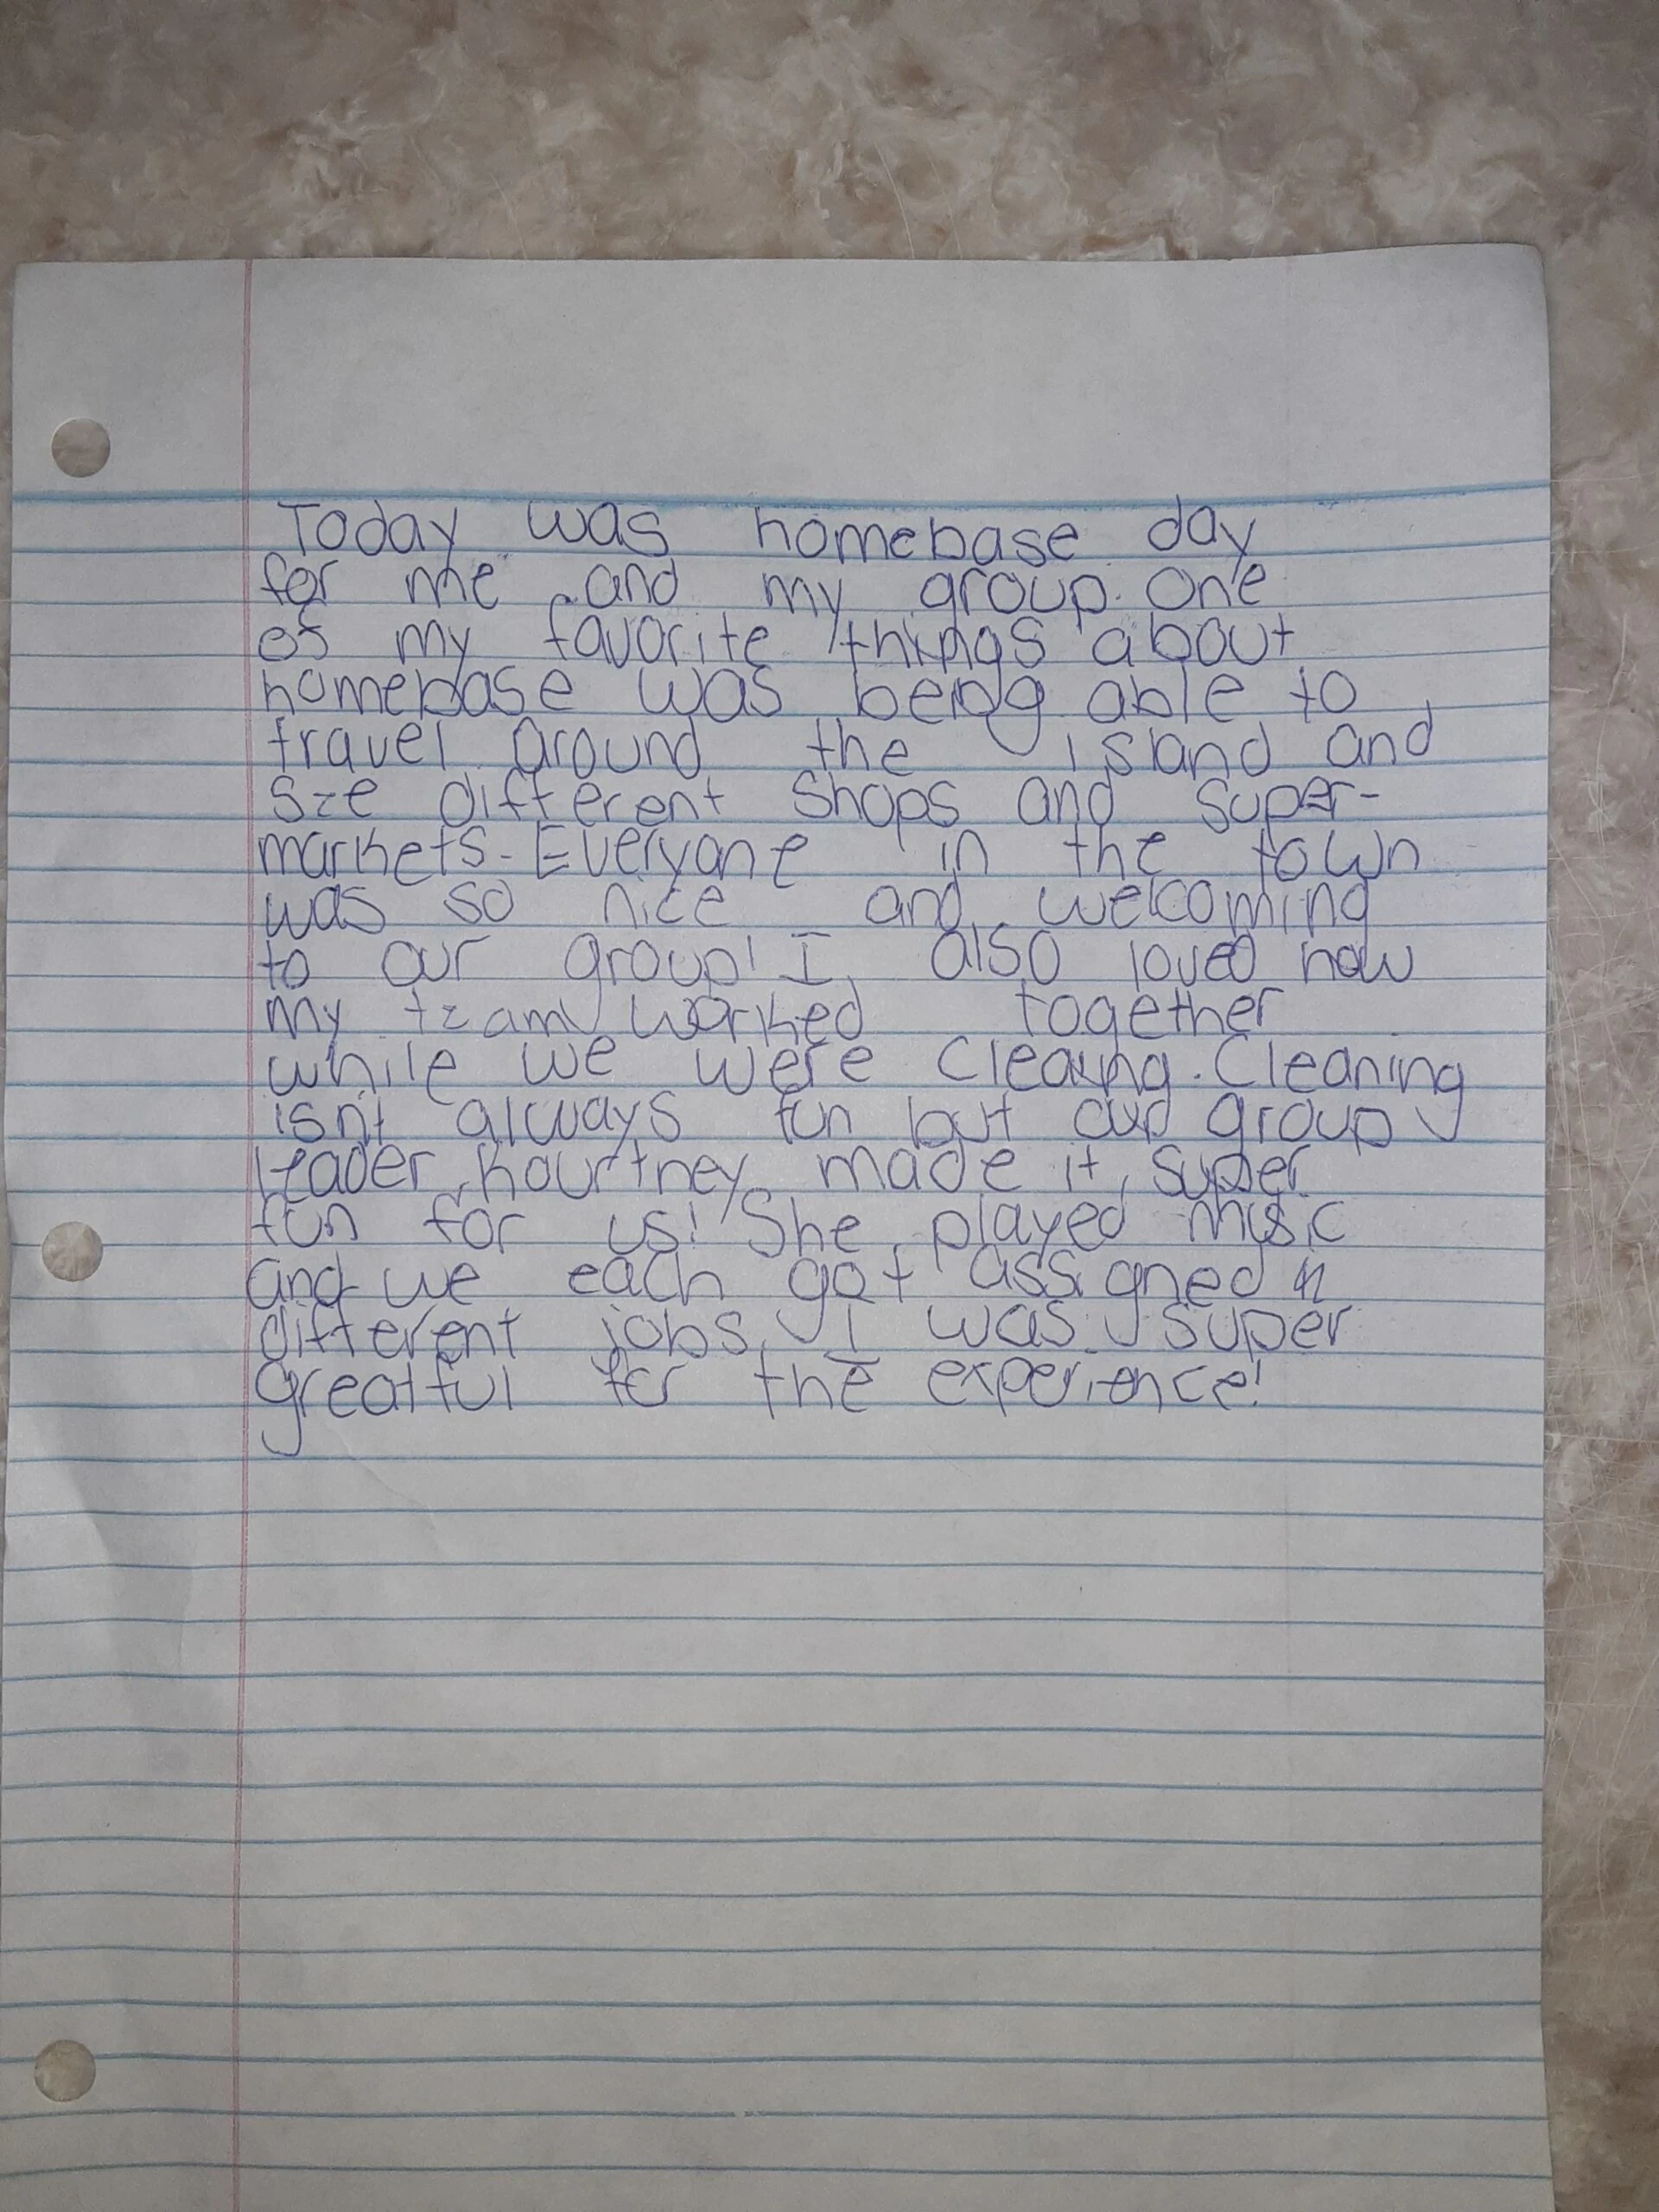 Today was homebase day
for me and my group. One
of my favorite things about
homebase was being able to
travel around the island and
see different shops and super-
markets. Everyone in the town
was so nice and welcoming
to our group! I also loved how
my team worked together
while we were cleaing. Cleaning
isnt always fun but our group
leader, Kourtney made it super
fun for us! She played music
and we each got assigned
different jobs. I was super
greatful for the experience!